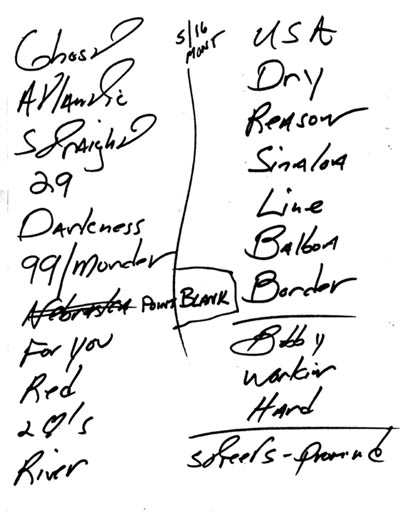 Ghost
Atlantic
Straight
29
Darkness
99/Murder
Nebraska POINT BLANK
For you
Red
2 ♡'s
River
5/16
MONT
USA
Dry
Reason
Sinaloa
Line
Balboa
Border
Bobby
Workin
Hard
Streets - Promised